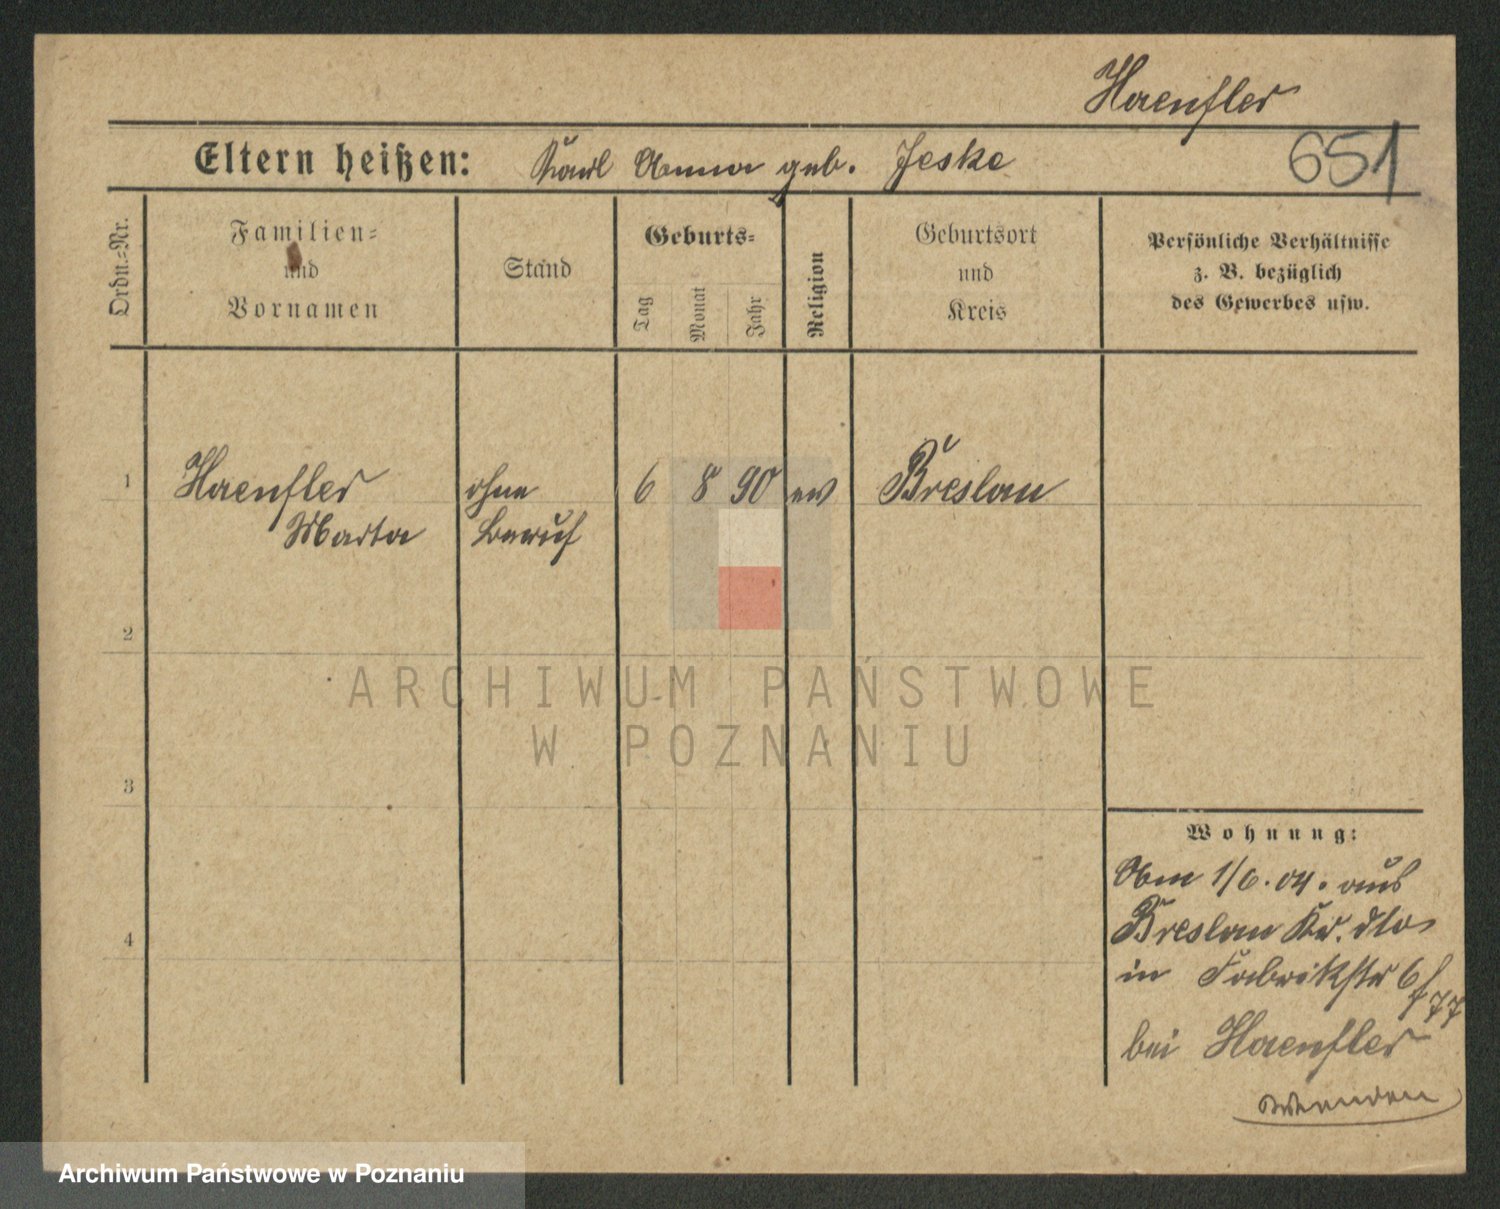 Haensler
Eltern heißen: Karl Anna geb. Jeske
651
Ordn.-Nr.
Familien-
und
Vornamen
Stand
Geburts-
Tag
Monat
Jahr
Religion
Geburtsort
und
Kreis
Persönliche Verhältnisse
z. B. bezüglich
des Gewerbes usw.
1
Haensler
Marta
ohne
Beruf
6 8 90 ev Breslau
2
3
4
Wohnung:
Am 1/6. 04. aus
Breslau Kr. dto
in Fabrikstr 6
f 77
bei Haensler
wenden
ARCHIWUM PAŃSTWOWE
W POZNANIU
Archiwum Państwowe w Poznaniu